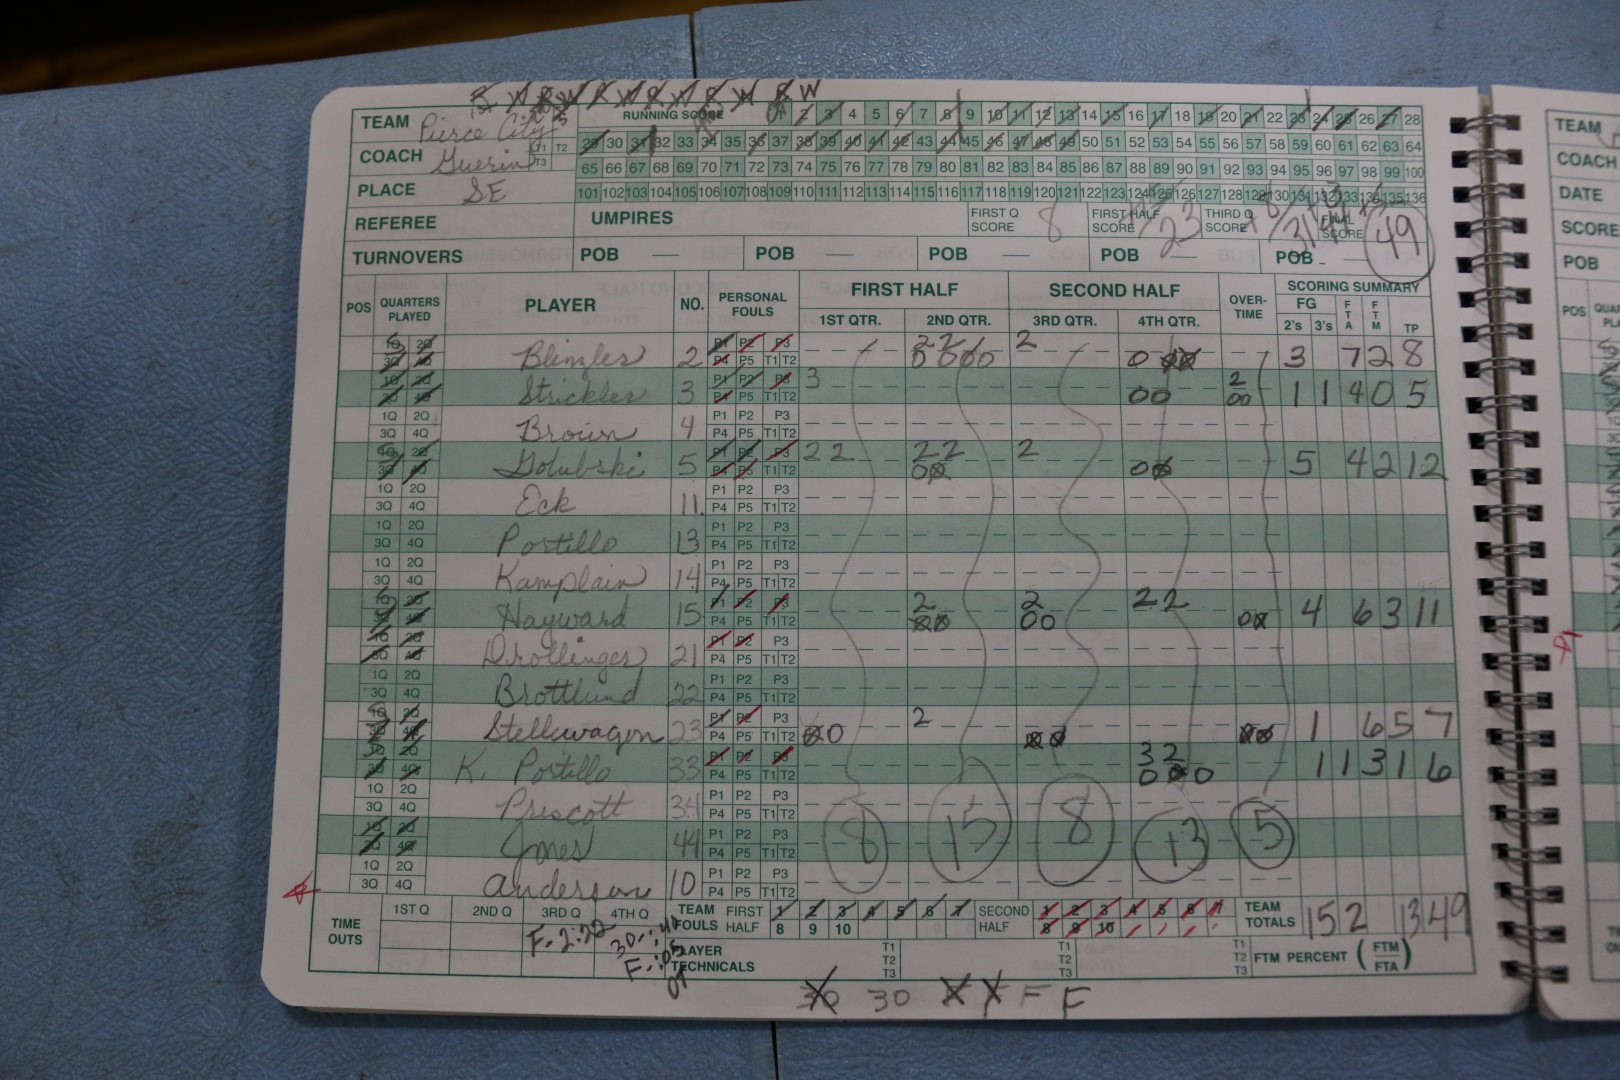 TEAM Pierce City
RUNNING SCORE 1 2 3 4 5 6 7 8 9 10 11 12 13 14 15 16 17 18 19 20 21 22 23 24 25 26 27 28
COACH Guerin T1 T2 T3
29 30 31 32 33 34 35 36 37 38 39 40 41 42 43 44 45 46 47 48 49 50 51 52 53 54 55 56 57 58 59 60 61 62 63 64
65 66 67 68 69 70 71 72 73 74 75 76 77 78 79 80 81 82 83 84 85 86 87 88 89 90 91 92 93 94 95 96 97 98 99 100
PLACE SE
101 102 103 104 105 106 107 108 109 110 111 112 113 114 115 116 117 118 119 120 121 122 123 124 125 126 127 128 129 130 131 132 133 134 135 136
REFEREE UMPIRES FIRST Q SCORE 8 FIRST HALF SCORE 23 THIRD Q SCORE 31 FINAL SCORE 49
TURNOVERS POB — POB — POB — POB — POB —
POS QUARTERS PLAYED PLAYER NO. PERSONAL FOULS FIRST HALF SECOND HALF OVER-TIME SCORING SUMMARY
1ST QTR. 2ND QTR. 3RD QTR. 4TH QTR. FG 2's 3's FTA FTM TP
1Q 2Q 3Q 4Q 2 P1 P2 P3 P4 P5 T1 T2 2 2 2 3 7 2 8
1Q 2Q 3Q 4Q Strickler 3 P1 P2 P3 P4 P5 T1 T2 3 00 2 00 1 1 4 0 5
1Q 2Q 3Q 4Q Brown 4 P1 P2 P3 P4 P5 T1 T2
1Q 2Q 3Q 4Q Golubski 5 P1 P2 P3 P4 P5 T1 T2 2 2 2 2 2 5 4 2 12
1Q 2Q 3Q 4Q Eck 11 P1 P2 P3 P4 P5 T1 T2
1Q 2Q 3Q 4Q Portillo 13 P1 P2 P3 P4 P5 T1 T2
1Q 2Q 3Q 4Q Kamplain 14 P1 P2 P3 P4 P5 T1 T2
1Q 2Q 3Q 4Q Hayward 15 P1 P2 P3 P4 P5 T1 T2 2 2 00 2 2 4 6 3 11
1Q 2Q 3Q 4Q Drollinger 21 P1 P2 P3 P4 P5 T1 T2
1Q 2Q 3Q 4Q Brottlund 22 P1 P2 P3 P4 P5 T1 T2
1Q 2Q 3Q 4Q Stellwagon 23 P1 P2 P3 P4 P5 T1 T2 2 1 6 5 7
1Q 2Q 3Q 4Q K. Portillo 33 P1 P2 P3 P4 P5 T1 T2 3 2 1 1 3 1 6
1Q 2Q 3Q 4Q Prescott 34 P1 P2 P3 P4 P5 T1 T2
1Q 2Q 3Q 4Q Jones 44 P1 P2 P3 P4 P5 T1 T2 8 15 8 13 5
1Q 2Q 3Q 4Q Anderson 10 P1 P2 P3 P4 P5 T1 T2
TIME OUTS 1ST Q 2ND Q 3RD Q 4TH Q TEAM FOULS FIRST HALF 1 2 3 4 5 6 7 8 9 10 SECOND HALF 1 2 3 4 5 6 7 8 9 10 TEAM TOTALS 15 2 13 49
F-2:22 30-:40 F-:05 OT
PLAYER TECHNICALS T1 T2 T3 T1 T2 T3 T1 T2 T3 FTM PERCENT ( FTM FTA )
30 30 F F
TEAM
COACH
DATE
SCORE
POB
POS